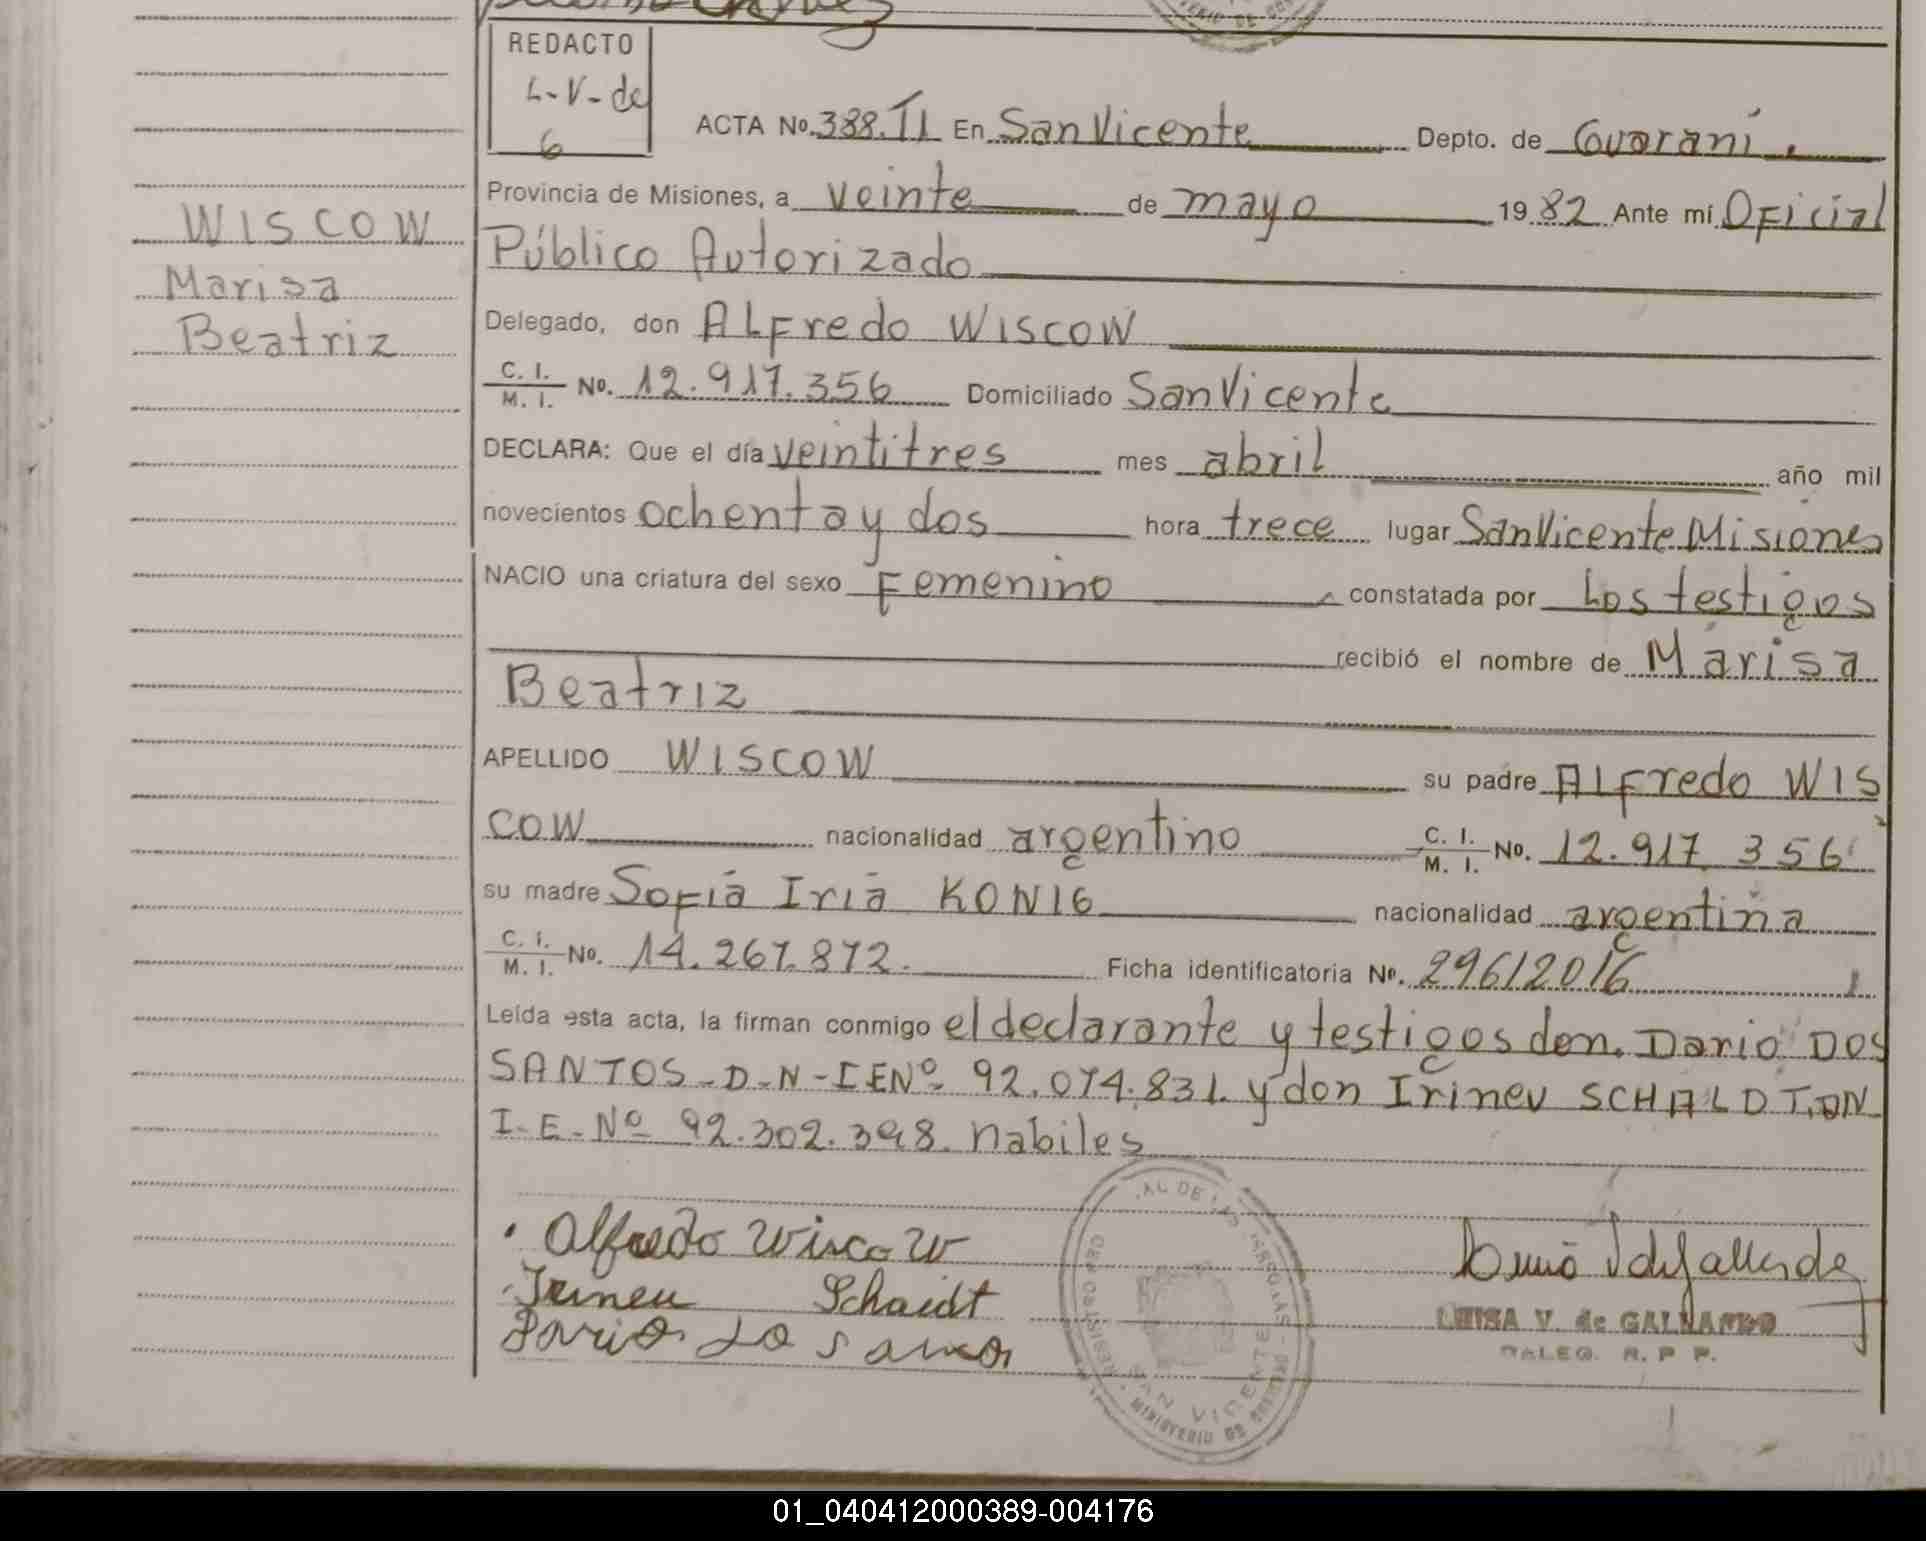 REDACTO
L-V-de
G
ACTA No. 388. T1 En San Vicente Depto. de Guaraní.
Provincia de Misiones, a veinte de mayo 1982 Ante mí Oficial
Público Autorizado
Delegado, don ALFredo WISCOW
C. I. / M. I. No. 12.917.356 Domiciliado San Vicente
DECLARA: Que el día veintitres mes abril año mil
novecientos ochenta y dos hora trece lugar San Vicente Misiones
NACIO una criatura del sexo Femenino constatada por Los testigos
recibió el nombre de Marisa
Beatriz
APELLIDO WISCOW su padre ALFredo WIS
COW nacionalidad argentino C. I. / M. I. No. 12.917.356
su madre Sofia Iria KONIG nacionalidad argentina
C. I. / M. I. No. 14.267.872. Ficha identificatoria No. 29612016
Leída esta acta, la firman conmigo el declarante y testigos don. Dario DOS
SANTOS-D-N-I-E Nº 92.074.831. y don Irineu SCHALDT, DN
I-E-Nº 92.302.398. habiles
WISCOW
Marisa
Beatriz
Alfredo Wiscow
Irineu Schaidt
LUISA V. de GALLARDO
DELEG. R. P. P.
SAN VICENTE
MINISTERIO DE GOBIERNO
01_040412000389-004176